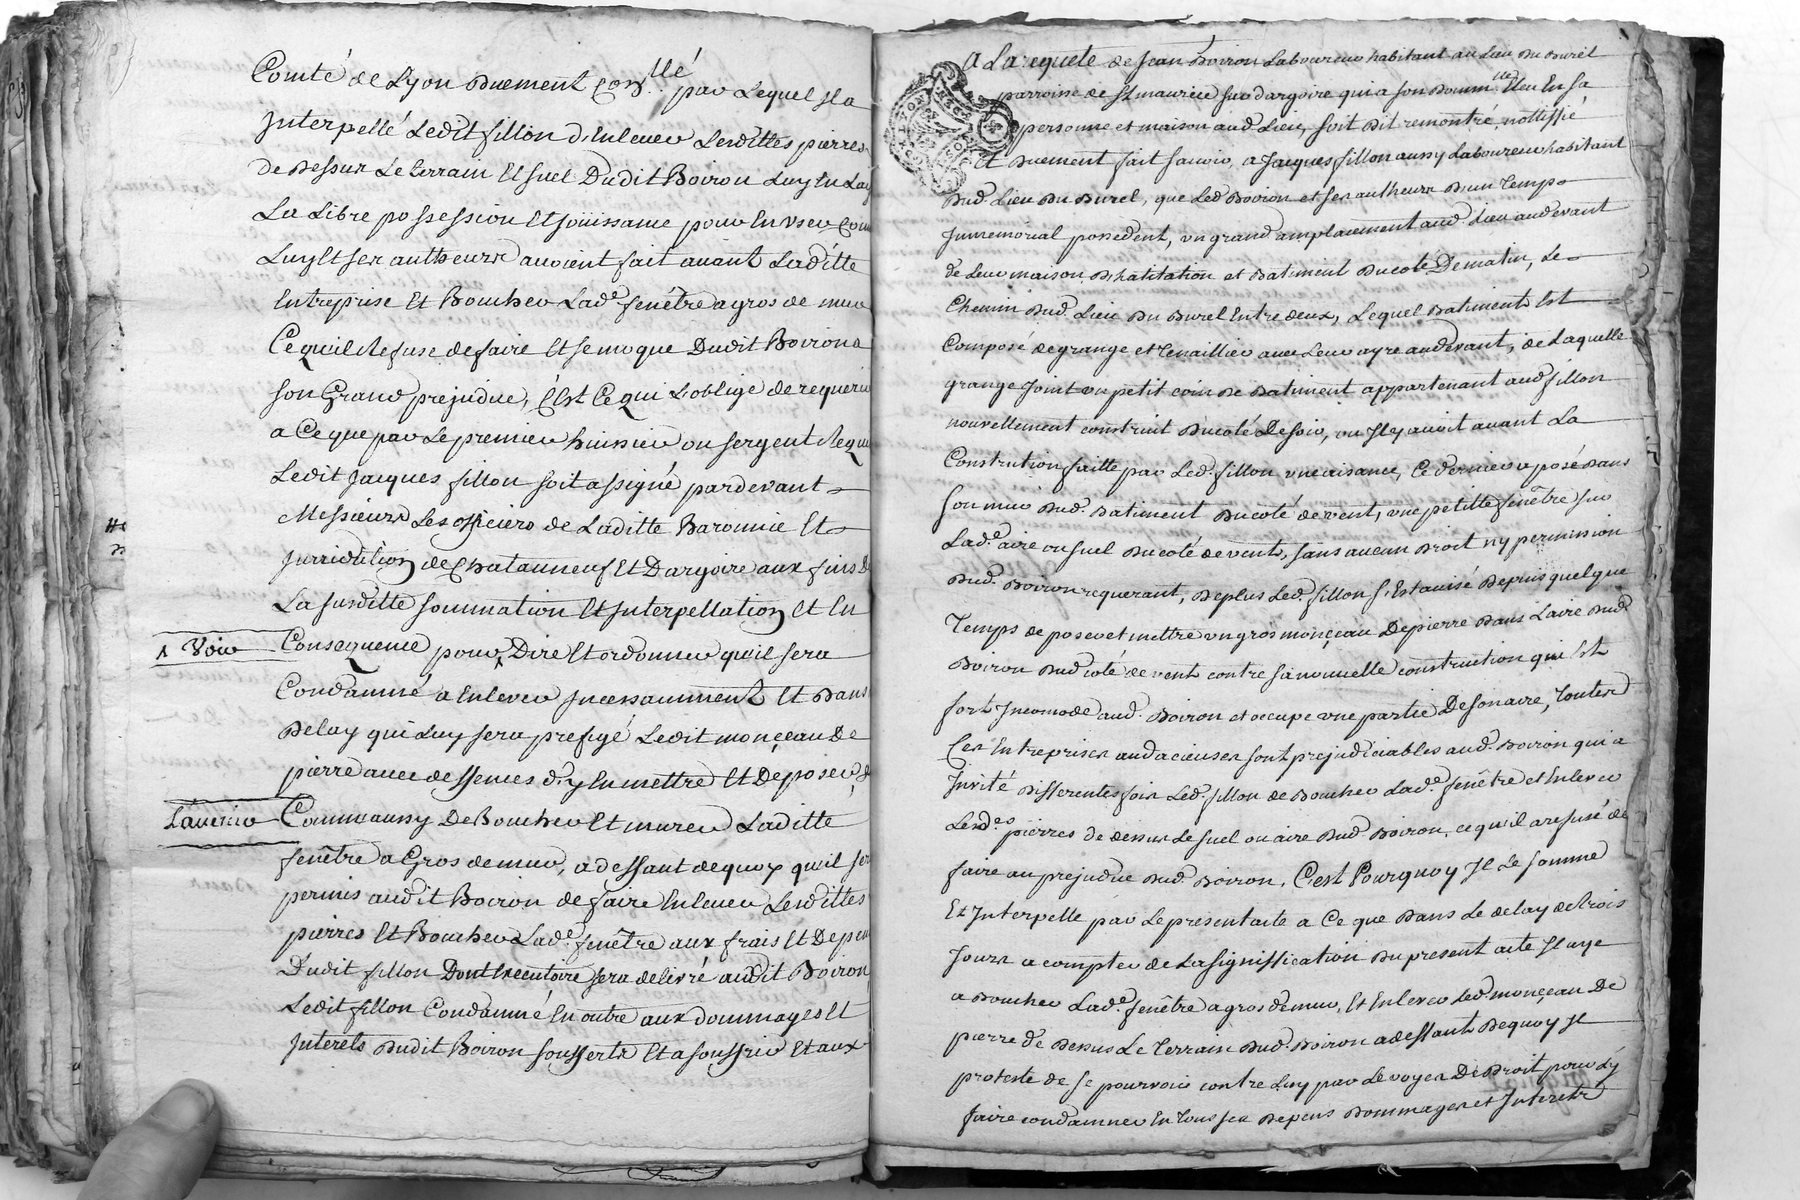 Comté de Lyon Duement Con.llé par Lequel Il a
Interpellé Ledit fillion d'Enlever Lesdittes pierres
de Dessur Le terrain Et suel Dudit Boiron Luy En
La Libre possession Et Jouissance pour En User
Luy Et ses autheurs avoient fait avant Laditte
Entreprise Et Boucher Lad.e fenêtre a gros de mur
Ce quil Refuse de faire Et se moque Dudit Boiron a
son Grand prejudice, C'Est Ce qui L'oblige de requerir
a Ce que par Le premier huissier ou sergent
Ledit Jacques fillon soit assigné pardevant
Messieurs Les officiers de Laditte Baronnie Et
Jurridiction de Chatauneuf Et Dargoire aux fins
La susditte sommation Et Interpellation Et En
1 Voir
Consequence pour, Dire Et ordonner qu'il sera
Condamné a Enlever Incessamment Et Dans
Delay qui Luy sera prefigé Ledit monçeau De
pierre avec deffences d'y En mettre Et Deposer
L'avenir
Comm'aussy De Boucher Et murer Laditte
fenêtre a Gros de mur, a deffaut de quoy qu'il
permis audit Boiron de faire Enlever Lesdittes
pierres Et Boucher Lad.e fenêtre aux frais Et
Dudit fillon Dont Executoire sera delivré audit Boiron
Ledit fillon Condamné En outre aux dommages Et
Interets Dudit Boiron soufferts Et a souffrir Et aux
A La requete de Jean Boiron Laboureur habitant au Lieu Du Burel
parroisse de St maurice sur dargoire qui a son Domm.lle Elu En sa
personne et maison aud. Lieu, soit Dit remontré, nottiffié
Et Duement fait savoir, a Jacques fillon aussy Laboureur habitant
Dud. Lieu Du Burel, que Led. Boiron et ses autheurs D'un Temps
Immemorial possedent, un grand amplacement aud. Lieu audevant
de Leur maison D'habitation et Batiment Du coté De matin, Le
Chemin Dud. Lieu Du Burel Entre deux, Lequel Batiment Est
Composé de grange et Tenaillier avec Leur ayre audevant, de Laquelle
grange Joint un petit coin De Batiment appartenant aud. fillon
nouvellement construit Du coté De soir, ou Il y avoit avant La
Constrution faitte par Led. fillon une aisance, Ce dernier a posé Dans
son mur Dud. Batiment Du coté de vent, une petitte fenêtre sur
Lad.e aire ou suel Du coté de vent, sans aucun Droit ny permission
Dud. Boiron requerant, De plus Led. fillon s'Est avisé Depuis quelque
Temps de poser et mettre un gros monçeau De pierre Dans L'aire Dud.
Boiron Dud. coté de vent contre sa nouvelle construction qui Est
fort Incomode aud. Boiron et occupe une partie De son aire, Toutes
Ces Entreprises audacieuses sont prejudiciables aud. Boiron qui a
Invité Differentes fois Led. fillon de Boucher Lad.e fenêtre et Enlever
Lesd.es pierres de dessus Le suel ou aire Dud. Boiron, ce qu'il a refusé de
faire au prejudice Dud. Boiron, C'est Pourquoy Il Le somme
Et Interpelle par Le present acte a Ce que Dans Le delay de trois
Jours a compter de La signiffication Du present acte Il aye
a Boucher Lad.e fenêtre a gros de mur, Et Enlever Led. monçeau De
pierre de Dessus Le Terrain Dud. Boiron a deffaut De quoy Il
proteste de se pourvoir contre Luy par Les voyes De Droit pour L'y
faire condamner En Tous ses Depens Dommages et Interets